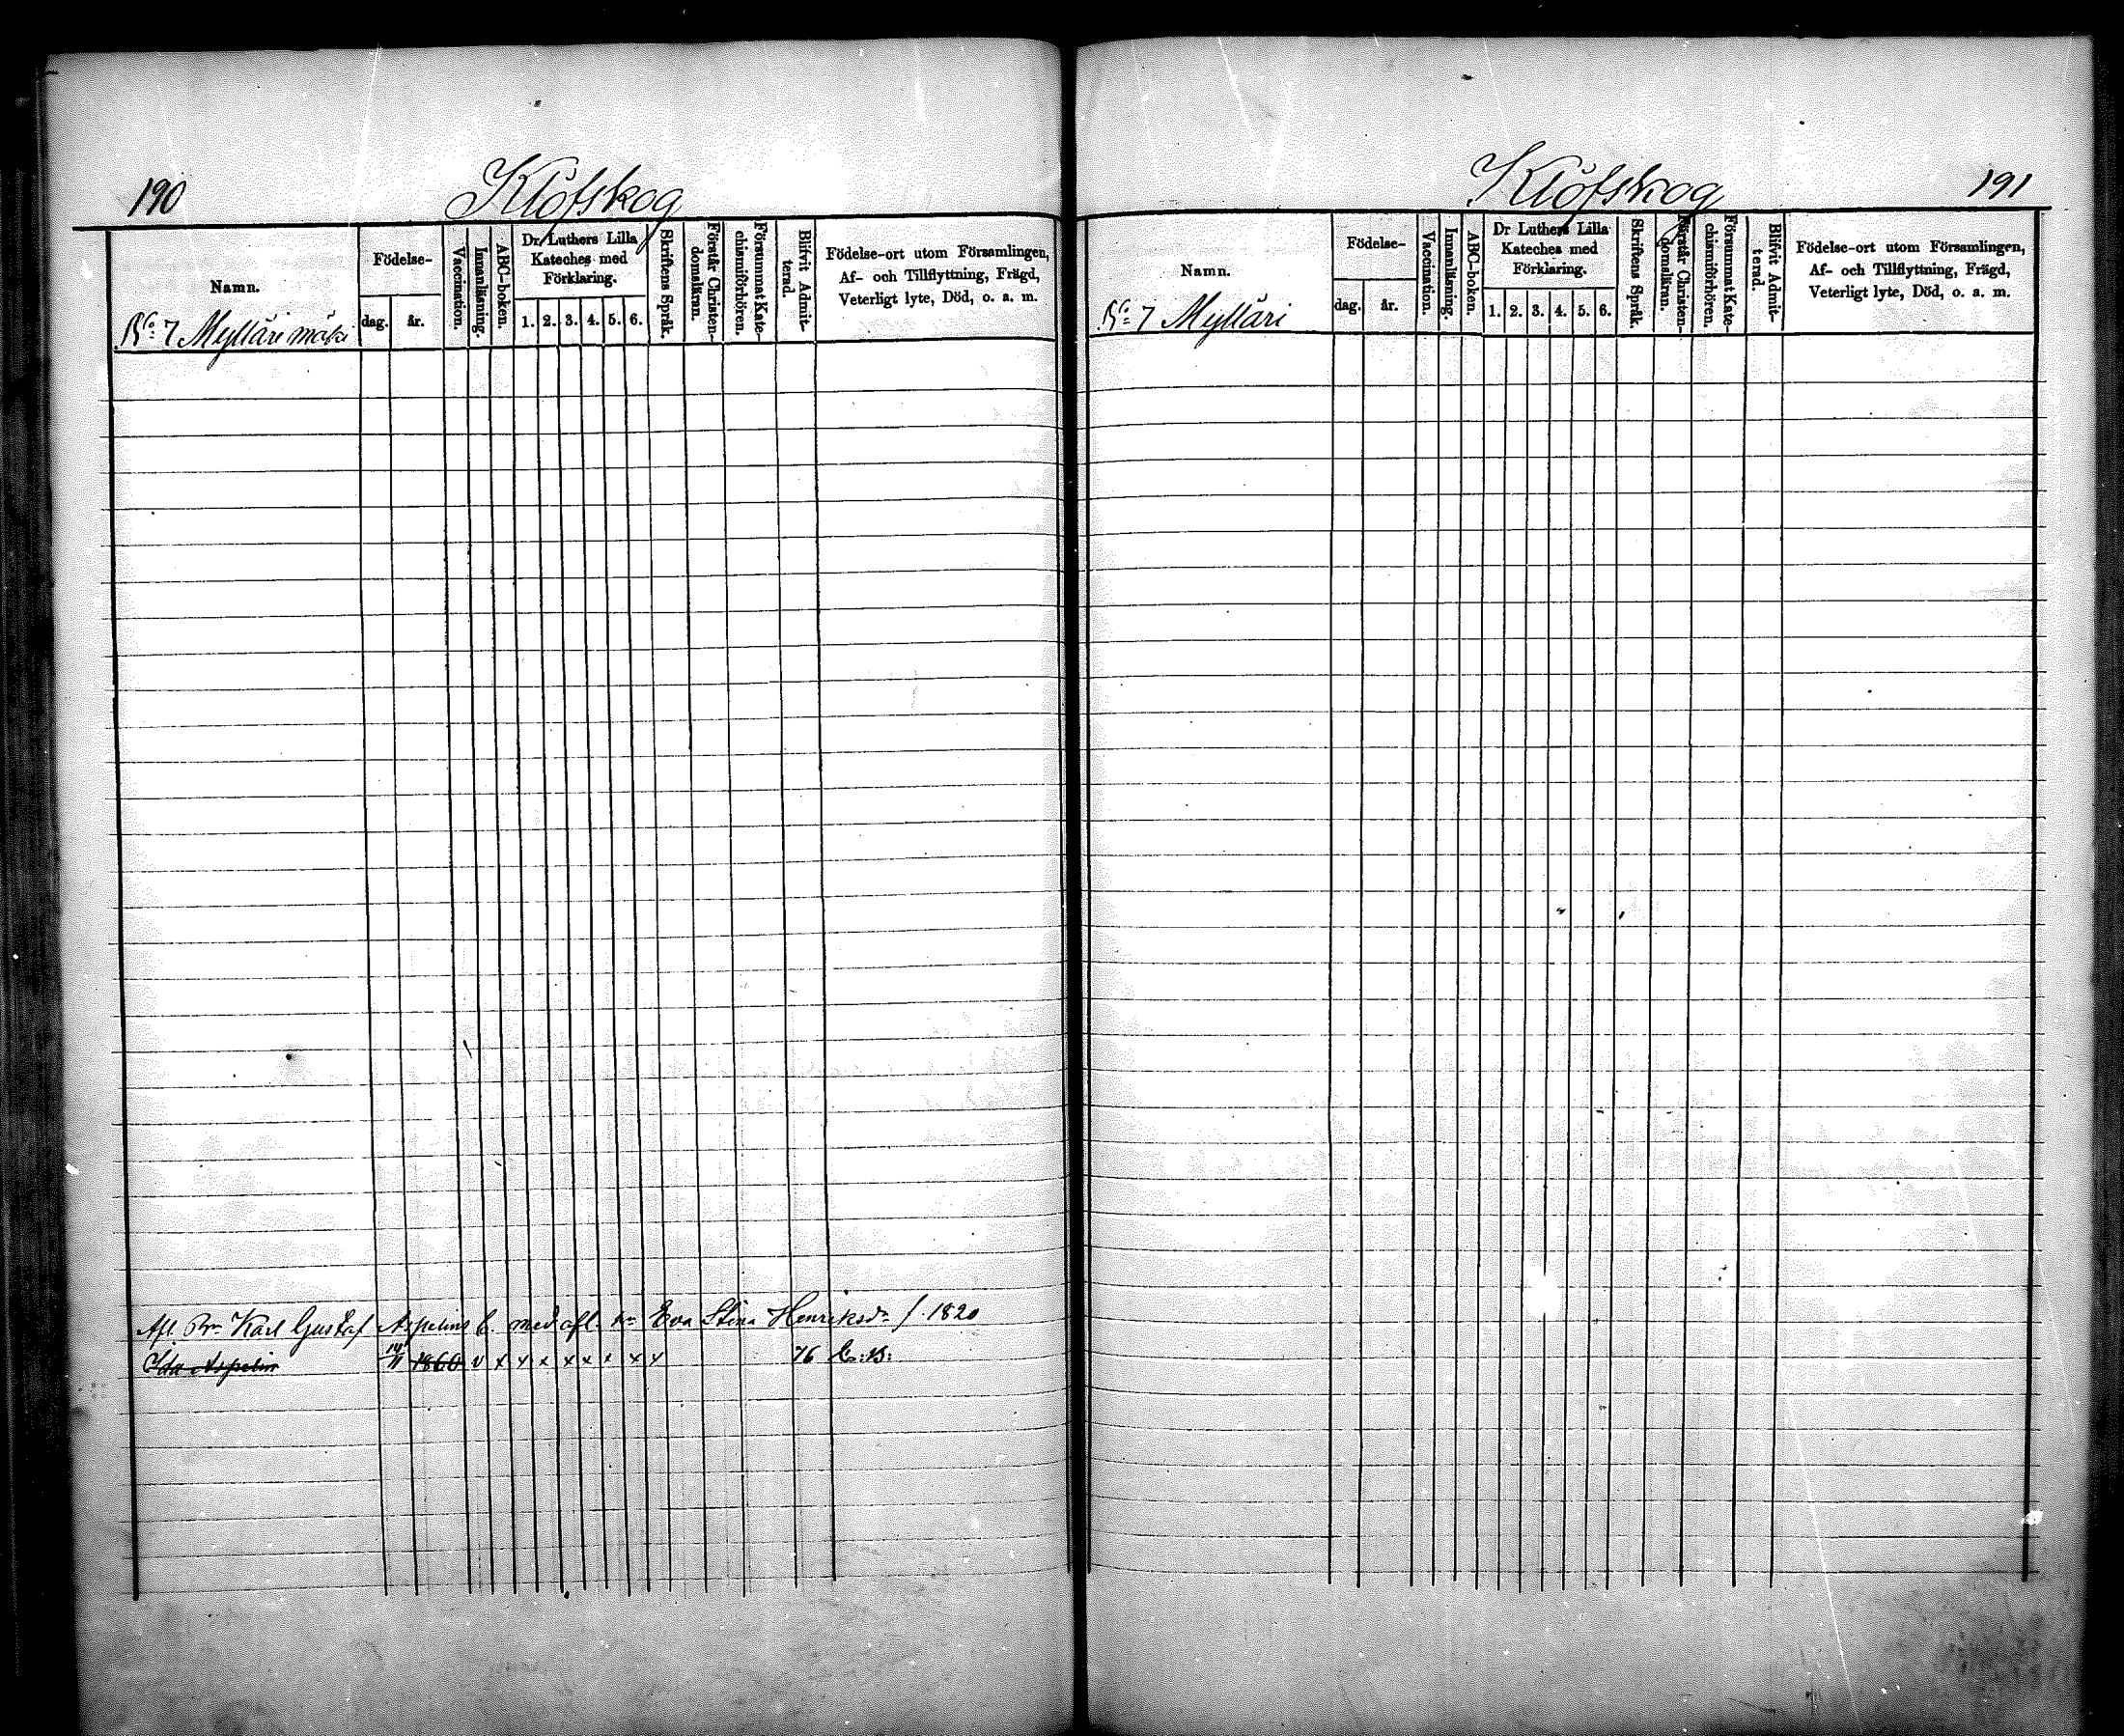 190
Klöfskog
Namn.
Födelse-
dag.
år.
Vaccination.
Innanläsning.
ABC-boken.
Dr Luthers Lilla
Kateches med
Förklaring.
1. 2. 3. 4. 5. 6.
Skriftens Språk.
Förstår Christen-
domsläran.
Försummat Kate-
chismiförhören.
Blifvit Admit-
terad.
Födelse-ort utom Församlingen,
Af- och Tillflyttning, Frägd,
Veterligt lyte, Död, o. a. m.
No: 7 Mylläri mäki
Afl. Karl Gustaf Aspelins b. med afl. Eva Stina Henriksdr f. 1820
Ida Aspelin 14/11 1860 v x x x x x x x x 76
Klöfskog
191
Namn.
Födelse-
dag.
år.
Vaccination.
Innanläsning.
ABC-boken.
Dr Luthers Lilla
Kateches med
Förklaring.
1. 2. 3. 4. 5. 6.
Skriftens Språk.
Förstår Christen-
domsläran.
Försummat Kate-
chismiförhören.
Blifvit Admit-
terad.
Födelse-ort utom Församlingen,
Af- och Tillflyttning, Frägd,
Veterligt lyte, Död, o. a. m.
No: 7 Mylläri